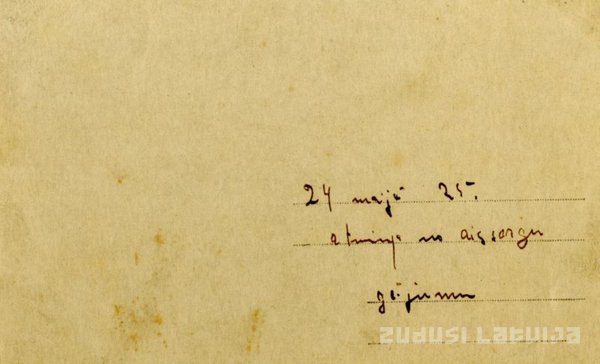 24 maijā 25.
atmiņa no aissargu
gājumu
zudusi Latvija